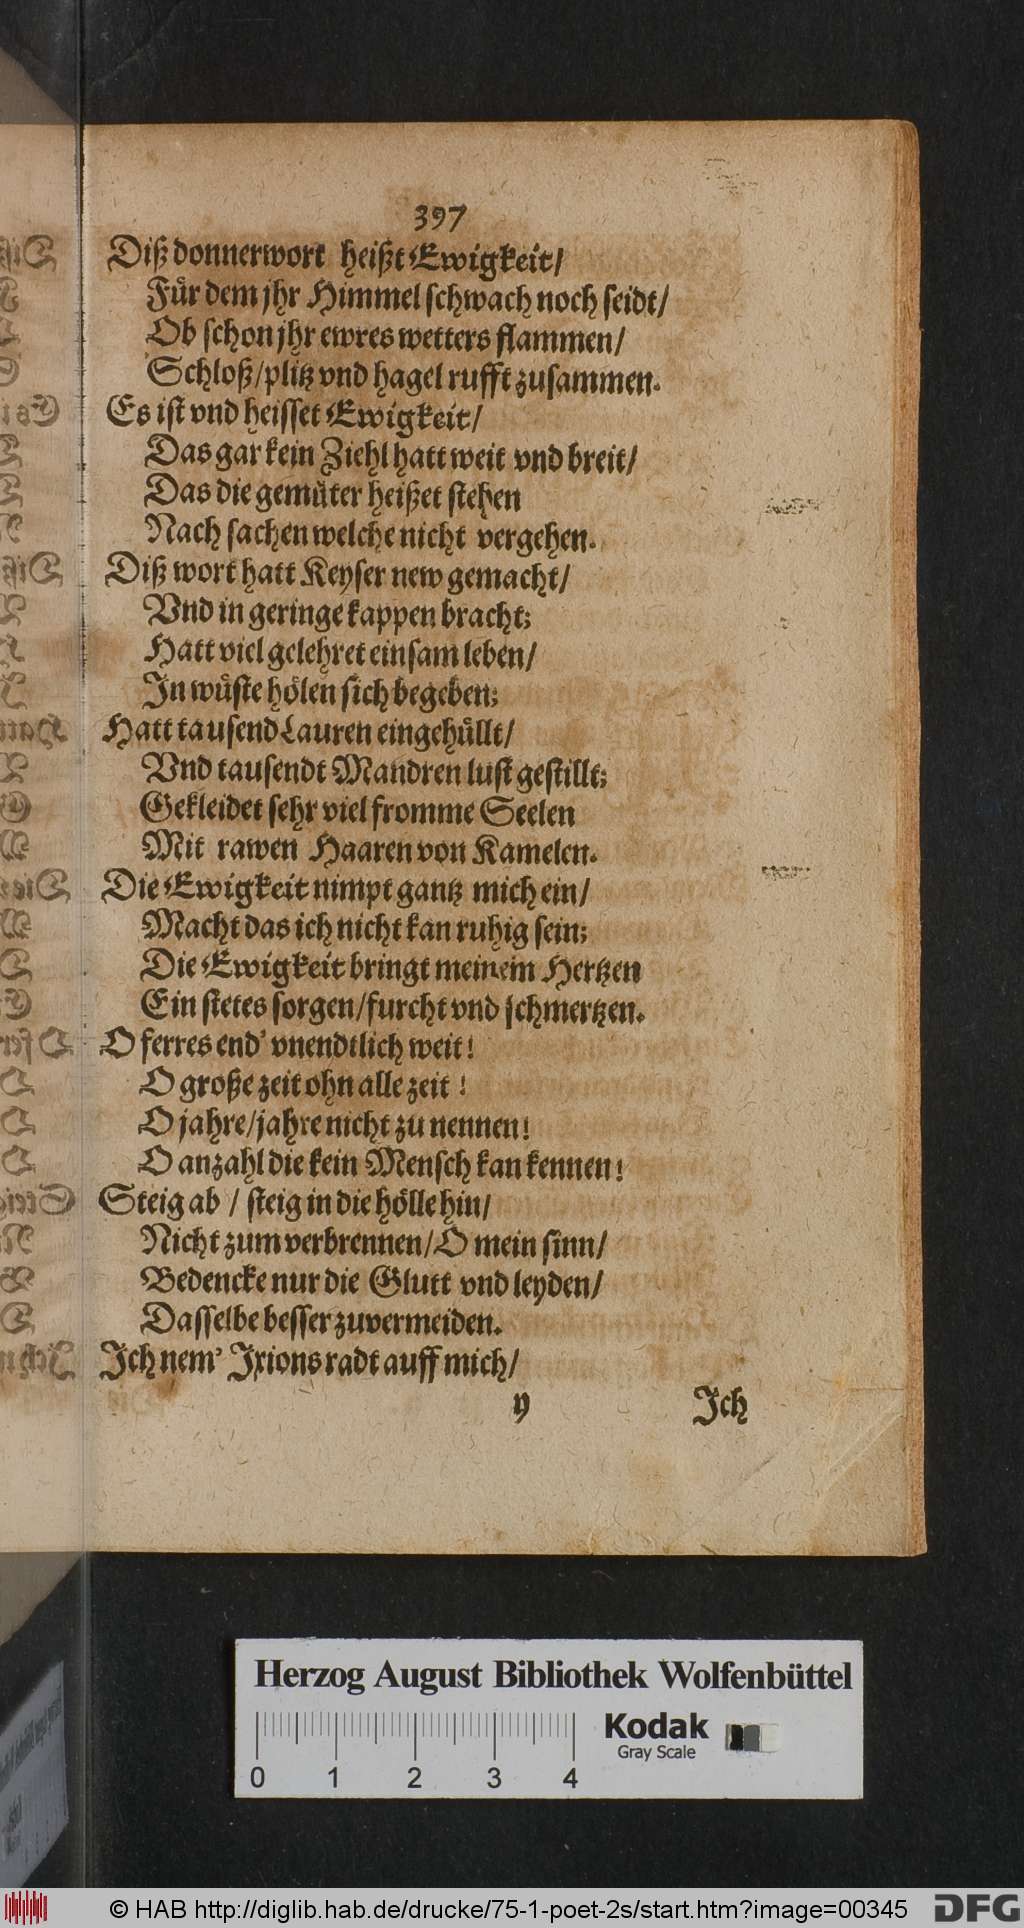 397
Diß donnerwort heißt Ewigkeit/
Fuͤr dem jhr Himmel schwach noch seidt/
Ob schon jhr ewres wetters flammen/
Schloß/plitz vnd hagel rufft zusammen.
Es ist vnd heisset Ewigkeit/
Das gar kein Ziehl hatt weit vnd breit/
Das die gemuͤter heißet stehen
Nach sachen welche nicht vergehen.
Diß wort hatt Keyser new gemacht/
Vnd in geringe kappen bracht;
Hatt viel gelehret einsam leben/
In wuͤste hoͤlen sich begeben;
Hatt tausend Lauren eingehuͤllt/
Vnd tausendt Mandren lust gestillt;
Gekleidet sehr viel fromme Seelen
Mit rawen Haaren von Kamelen.
Die Ewigkeit nimpt gantz mich ein/
Macht das ich nicht kan ruhig sein;
Die Ewigkeit bringt meinem Hertzen
Ein stetes sorgen/furcht vnd schmertzen.
O ferres end' vnendtlich weit!
O große zeit ohn alle zeit!
O jahre/jahre nicht zu nennen!
O anzahl die kein Mensch kan kennen!
Steig ab / steig in die hoͤlle hin/
Nicht zum verbrennen/O mein sinn/
Bedencke nur die Glutt vnd leyden/
Dasselbe besser zuvermeiden.
Ich nem' Ixions radt auff mich/
y Ich
Herzog August Bibliothek Wolfenbüttel
Kodak
Gray Scale
0 1 2 3 4
© HAB http://diglib.hab.de/drucke/75-1-poet-2s/start.htm?image=00345
DFG